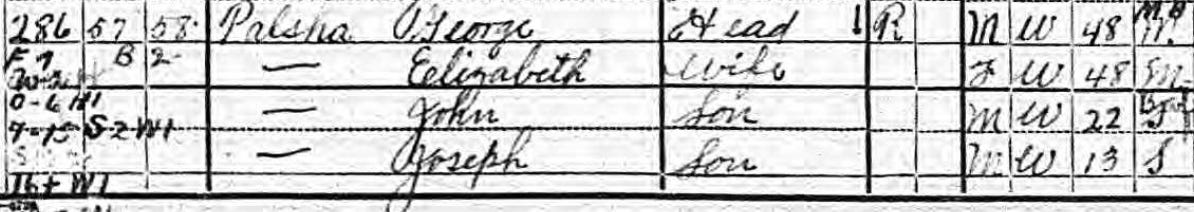 286 57 58 Palsha George Head R M W 48 M
F 7 B 2 — Eelizabeth Wife F W 48 M
0-6 — John Son M W 22 S
7-15 S-2 W1 — Joseph Son M W 13 S
16+ W1